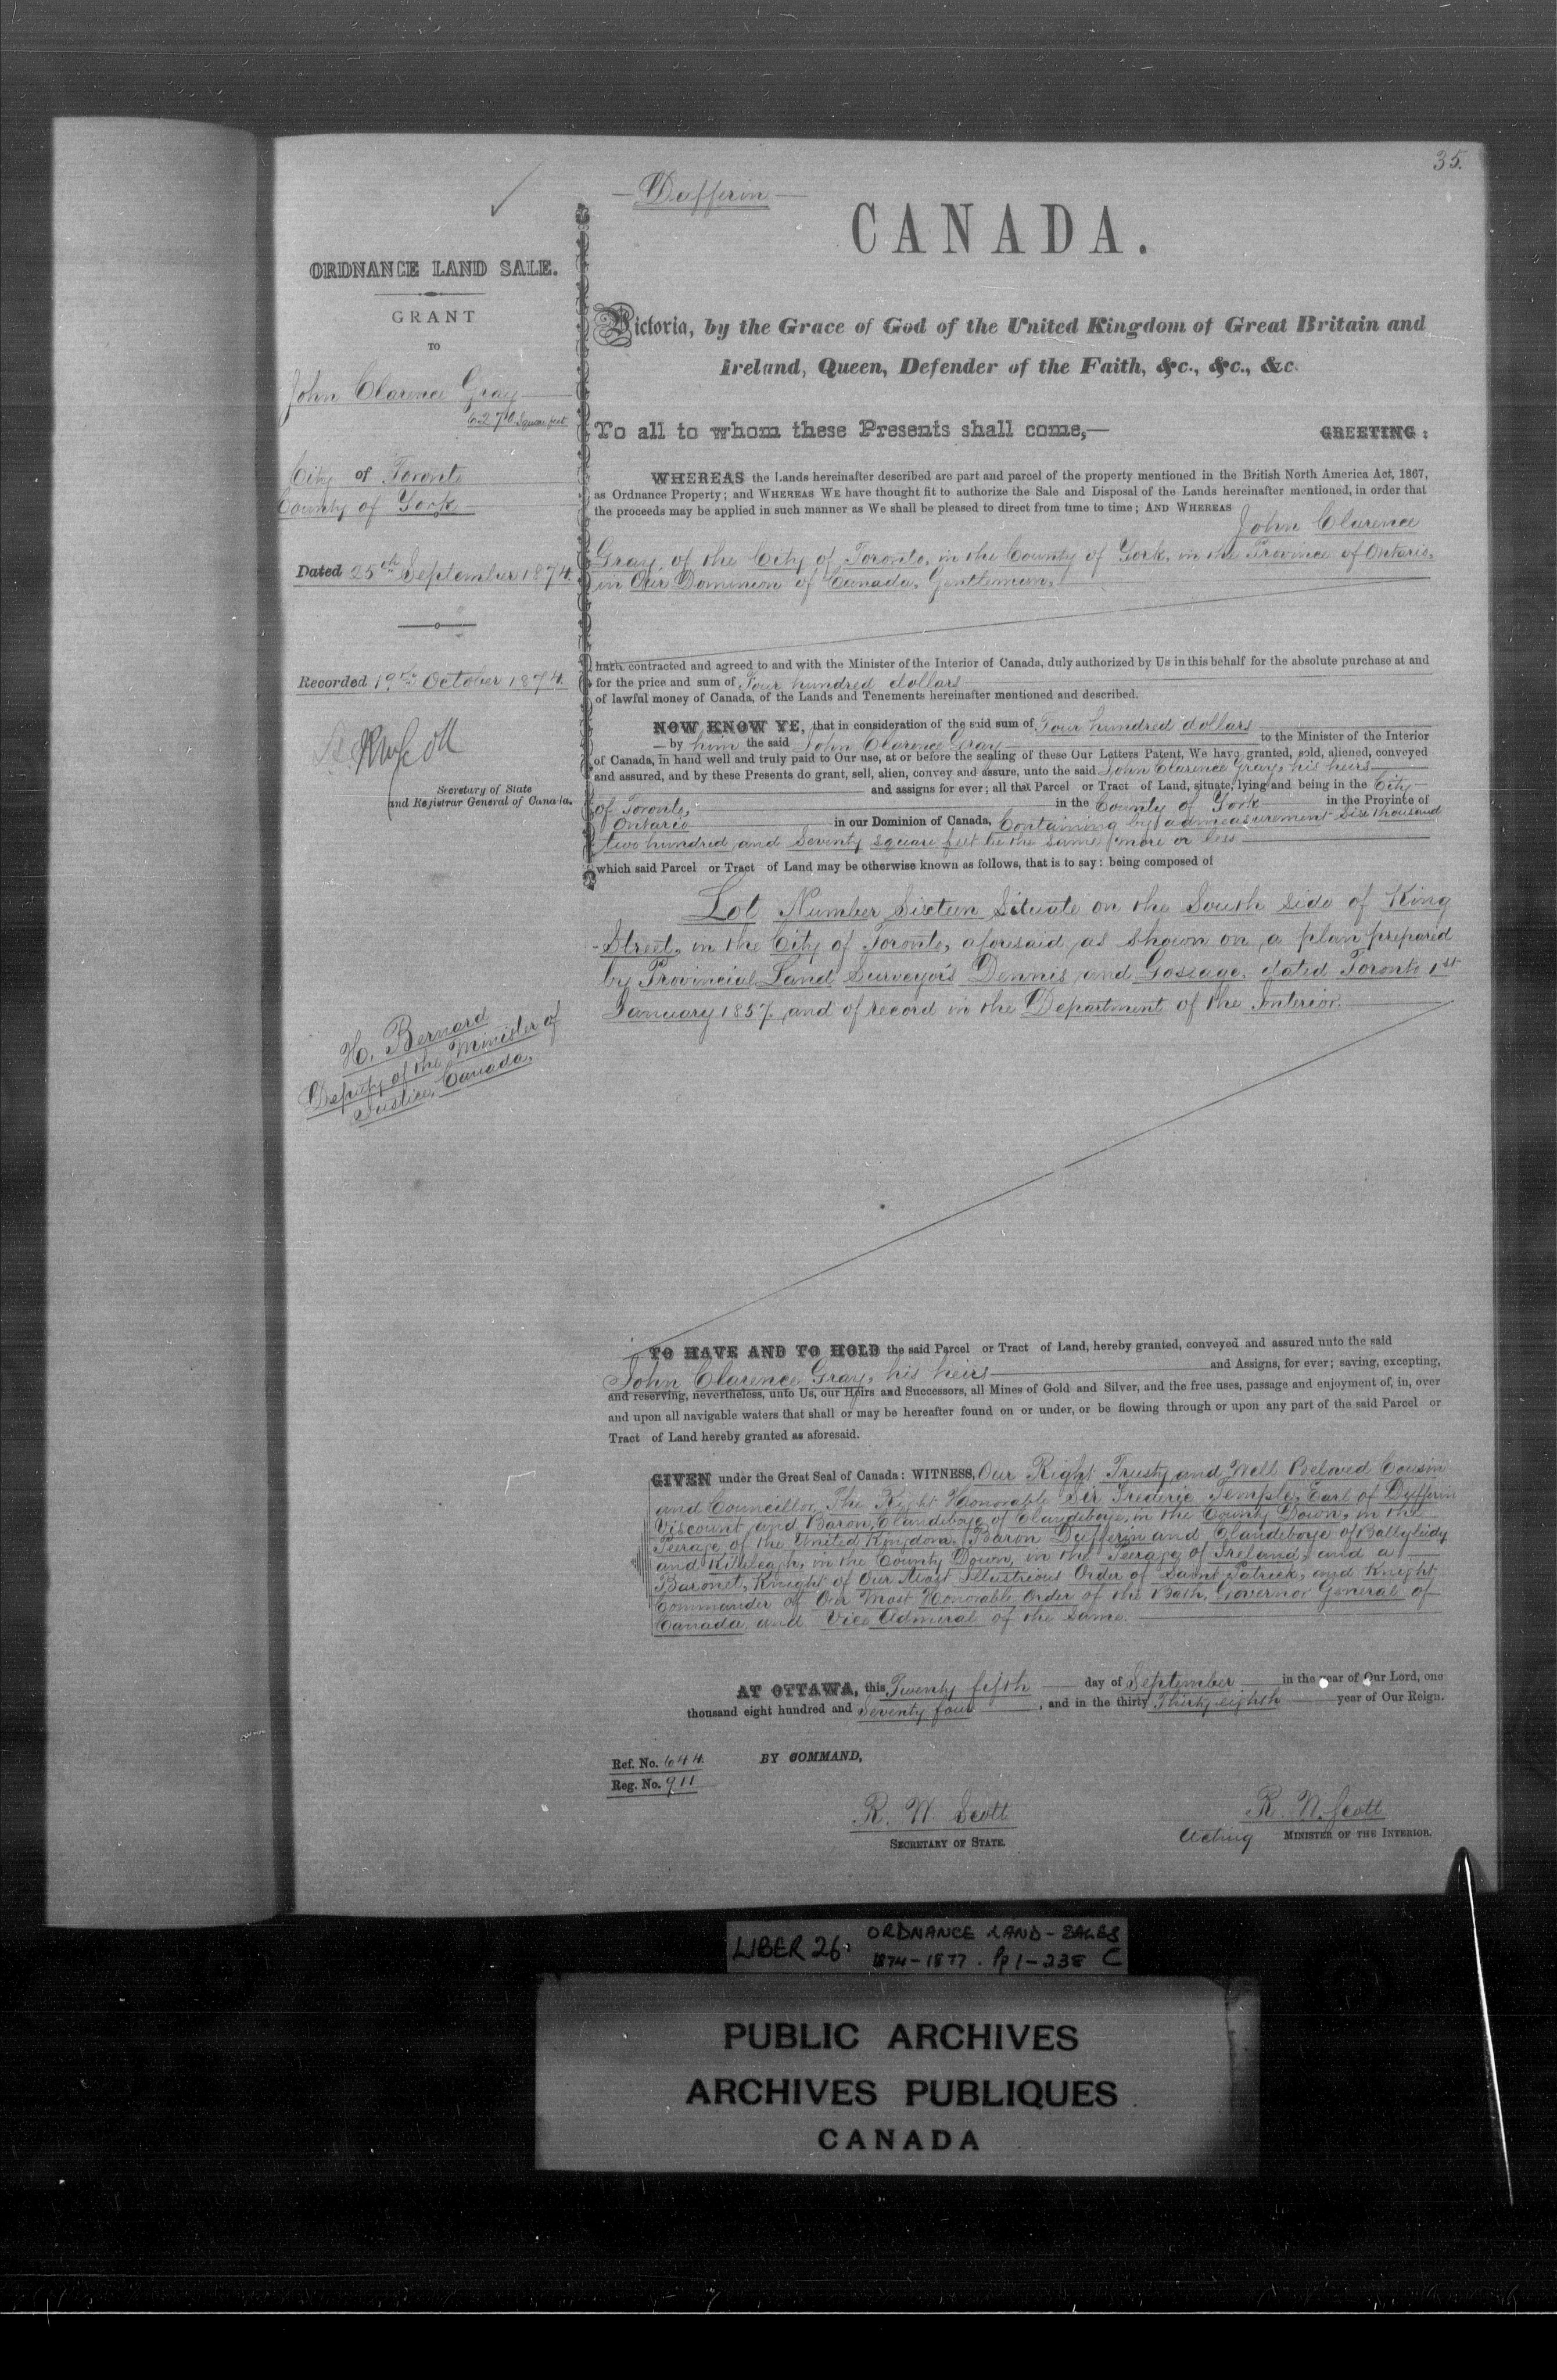 35.
Dufferin
CANADA.
ORDNANCE LAND SALE.
GRANT
TO
John Clarence Gray
6270 Square feet
City of Toronto
County of York
Dated 25th September 1874.
Recorded 19th October 1874.
Secretary of State
and Registrar General of Canada.
H. Bernard
Deputy of the Minister of
Justice, Canada.
Victoria, by the Grace of God of the United Kingdom of Great Britain and
Ireland, Queen, Defender of the Faith, &c., &c., &c.
To all to whom these Presents shall come,— GREETING:
WHEREAS the Lands hereinafter described are part and parcel of the property mentioned in the British North America Act, 1867,
as Ordnance Property; and WHEREAS WE have thought fit to authorize the Sale and Disposal of the Lands hereinafter mentioned, in order that
the proceeds may be applied in such manner as We shall be pleased to direct from time to time; AND WHEREAS John Clarence
Gray, of the City of Toronto, in the County of York, in the Province of Ontario,
in Our Dominion of Canada, Gentleman,
hath contracted and agreed to and with the Minister of the Interior of Canada, duly authorized by Us in this behalf for the absolute purchase at and
for the price and sum of Four hundred dollars
of lawful money of Canada, of the Lands and Tenements hereinafter mentioned and described.
NOW KNOW YE, that in consideration of the said sum of Four hundred dollars
by him the said John Clarence Gray to the Minister of the Interior
of Canada, in hand well and truly paid to Our use, at or before the sealing of these Our Letters Patent, We have granted, sold, aliened, conveyed
and assured, and by these Presents do grant, sell, alien, convey and assure, unto the said John Clarence Gray, his heirs
and assigns for ever; all that Parcel or Tract of Land, situate, lying and being in the City
of Toronto, in the County of York in the Provinte of
Ontario in our Dominion of Canada, Containing by admeasurement Six thousand
two hundred and Seventy square feet be the same more or less
which said Parcel or Tract of Land may be otherwise known as follows, that is to say: being composed of
Lot Number Sixteen Situate on the South side of King
Street, in the City of Toronto, aforesaid as shown on a plan prepared
by Provincial Land Surveyors Dennis and Gossage, dated Toronto 1st
January 1857, and of record in the Department of the Interior.
TO HAVE AND TO HOLD the said Parcel or Tract of Land, hereby granted, conveyed and assured unto the said
John Clarence Gray, his heirs and Assigns, for ever; saving, excepting,
and reserving, nevertheless, unto Us, our Heirs and Successors, all Mines of Gold and Silver, and the free uses, passage and enjoyment of, in, over
and upon all navigable waters that shall or may be hereafter found on or under, or be flowing through or upon any part of the said Parcel or
Tract of Land hereby granted as aforesaid.
GIVEN under the Great Seal of Canada: WITNESS, Our Right Trusty and Well Beloved Cousin
and Councillor, The Right Honorable Sir Frederic Temple, Earl of Dufferin
Viscount and Baron Clandeboye of Clandeboye, in the County Down, in the
Peerage of the United Kingdom, Baron Dufferin and Clandeboye of Ballyleidy
and Killeleagh, in the County Down, in the Peerage of Ireland, and a
Baronet, Knight of Our Most Illustrious Order of Saint Patrick, and Knight
Commander of Our Most Honorable Order of the Bath, Governor General of
Canada, and Vice Admiral of the same.
AT OTTAWA, this Twenty fifth day of September in the year of Our Lord, one
thousand eight hundred and Seventy four, and in the thirty Thirty eighth year of Our Reign.
Ref. No. 644.
Reg. No. 911
BY COMMAND,
R. W. Scott
SECRETARY OF STATE.
R. W. Scott
Acting MINISTER OF THE INTERIOR.
LIBER 26. ORDNANCE LAND-SALES
1874-1877. Pp 1-238 C
PUBLIC ARCHIVES
ARCHIVES PUBLIQUES
CANADA